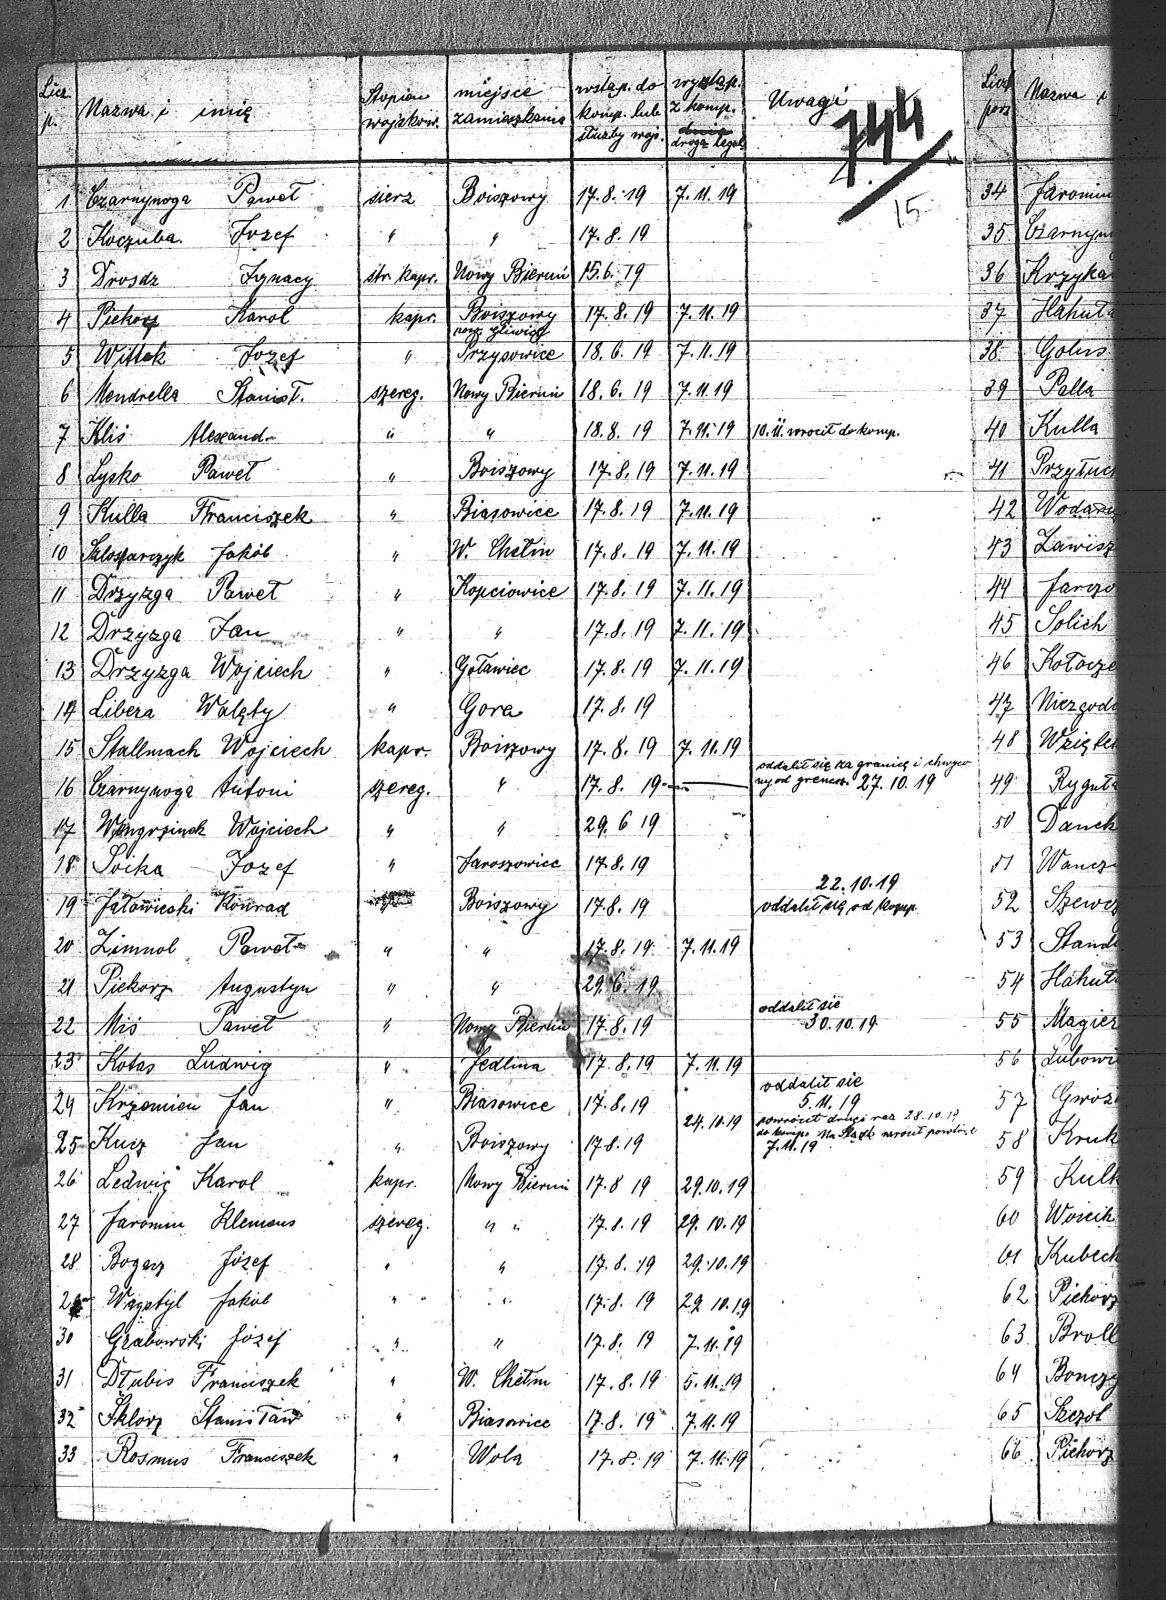 Licz. p. Nazwa i imię Stopień wojskow. miejsce zamieszkania wstąp. do komp. lub służby wojs. wystąp. z komp. drogą legal. Uwagi 744
15
1 Czarnynoga Paweł sierz Boiszowy 17.8.19 7.11.19
2 Koczuba Jozef " " 17.8.19
3 Drosdz Ignacy str. kapr. Nowy Bieruń 15.6.19
4 Piekorz Karol kapr. Boiszowy 17.8.19 7.11.19
5 Wittek Jozef " Przysowice 18.6.19 7.11.19
6 Mendrella Stanisł. szereg. Nowy Bieruń 18.6.19 7.11.19
7 Kliś Alexand. " " 18.8.19 7.11.19 10.11. wrocił do komp.
8 Lysko Paweł " Boiszowy 17.8.19 7.11.19
9 Kulla Franciszek " Biasowice 17.8.19 7.11.19
10 Szlosarczyk Jakób " W. Chełm 17.8.19 7.11.19
11 Drzyzga Paweł " Kopciowice 17.8.19 7.11.19
12 Drzyzga Jan " " 17.8.19 7.11.19
13 Drzyzga Wojciech " Goławiec 17.8.19 7.11.19
14 Libera Walęty " Gora 17.8.19
15 Stallmach Wojciech kapr. Boiszowy 17.8.19 7.11.19
16 Czarnynoga Antoni szereg. " 17.8.19 — oddalił się za granicę i chwyco
ny od grencsz. 27.10.19
17 Wojciech " " 29.6 19
18 Soika Jozef " Jaroszowice 17.8.19
19 Jałowiecki Konrad " Boiszowy 17.8.19 22.10.19
oddalił się od komp.
20 Zimnol Paweł " " 17.8.19 7.11.19
21 Piekorz Augustyn " " 29.6.19
22 Miś Paweł " Nowy Bieruń 17.8.19 oddalił sie
30.10.19
23 Kotas Ludwig " Jedlina 17.8.19 7.11.19
24 Krzemien Jan " Biasowice 17.8.19 oddalił sie
5.11.19
25 Kucz Jan " Boiszowy 17.8.19 24.10.19 powrócił drugi raz 28.10.19
do komp. na Śląsk wrócił
7.11.19
26 Ledwig Karol kapr. Nowy Bieruń 17.8 19 29.10.19
27 Jaromin Klemens szereg. " " 17.8.19 29.10.19
28 Bogacz Józef " " 17.8.19 29.10.19
29 Jakób " " 17.8.19 29.10.19
30 Grabowski Józef " " 17.8.19 7.11.19
31 Dłubis Franciszek " W. Chełm 17.8.19 5.11.19
32 Šklorz Stanisław " Biasowice 17.8.19 7.11.19
33 Rosmus Franciszek " Wola 17.8.19 7.11.19
Licz porz Nazwa i
34 Jaromin
35 Czarnyn
36 Krzyka
37 Hahuła
38 Golus
39 Palla
40 Kulla
41 Przyłuc
42 Wodarz
43 Zawisz
44 Jarczo
45 Solich
46 Kołocze
47 Niezgod
48 Wzięte
49 Ryguła
50 Danek
51 Wancz
52 Szewcz
53 Stand
54 Hahuł
55 Magier
56 Lubowi
57 Gwoz
58 Kruk
59 Kulk
60 Woicik
61 Kubec
62 Piekorz
63 Broll
64 Bonczy
65 Szczot
66 Piekorz